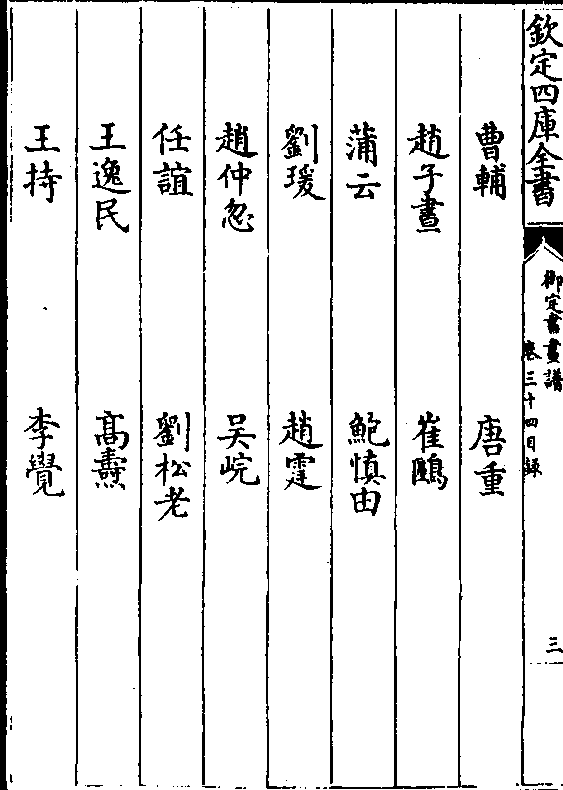 欽定四庫全書
御定書畫譜
卷三十四目録
三
曹輔　唐重
趙子晝　崔鶠
蒲云　鮑慎由
劉瑗　趙霆
趙仲忽　吴皖
任誼　劉松老
王逸民　髙燾
王持　李覺